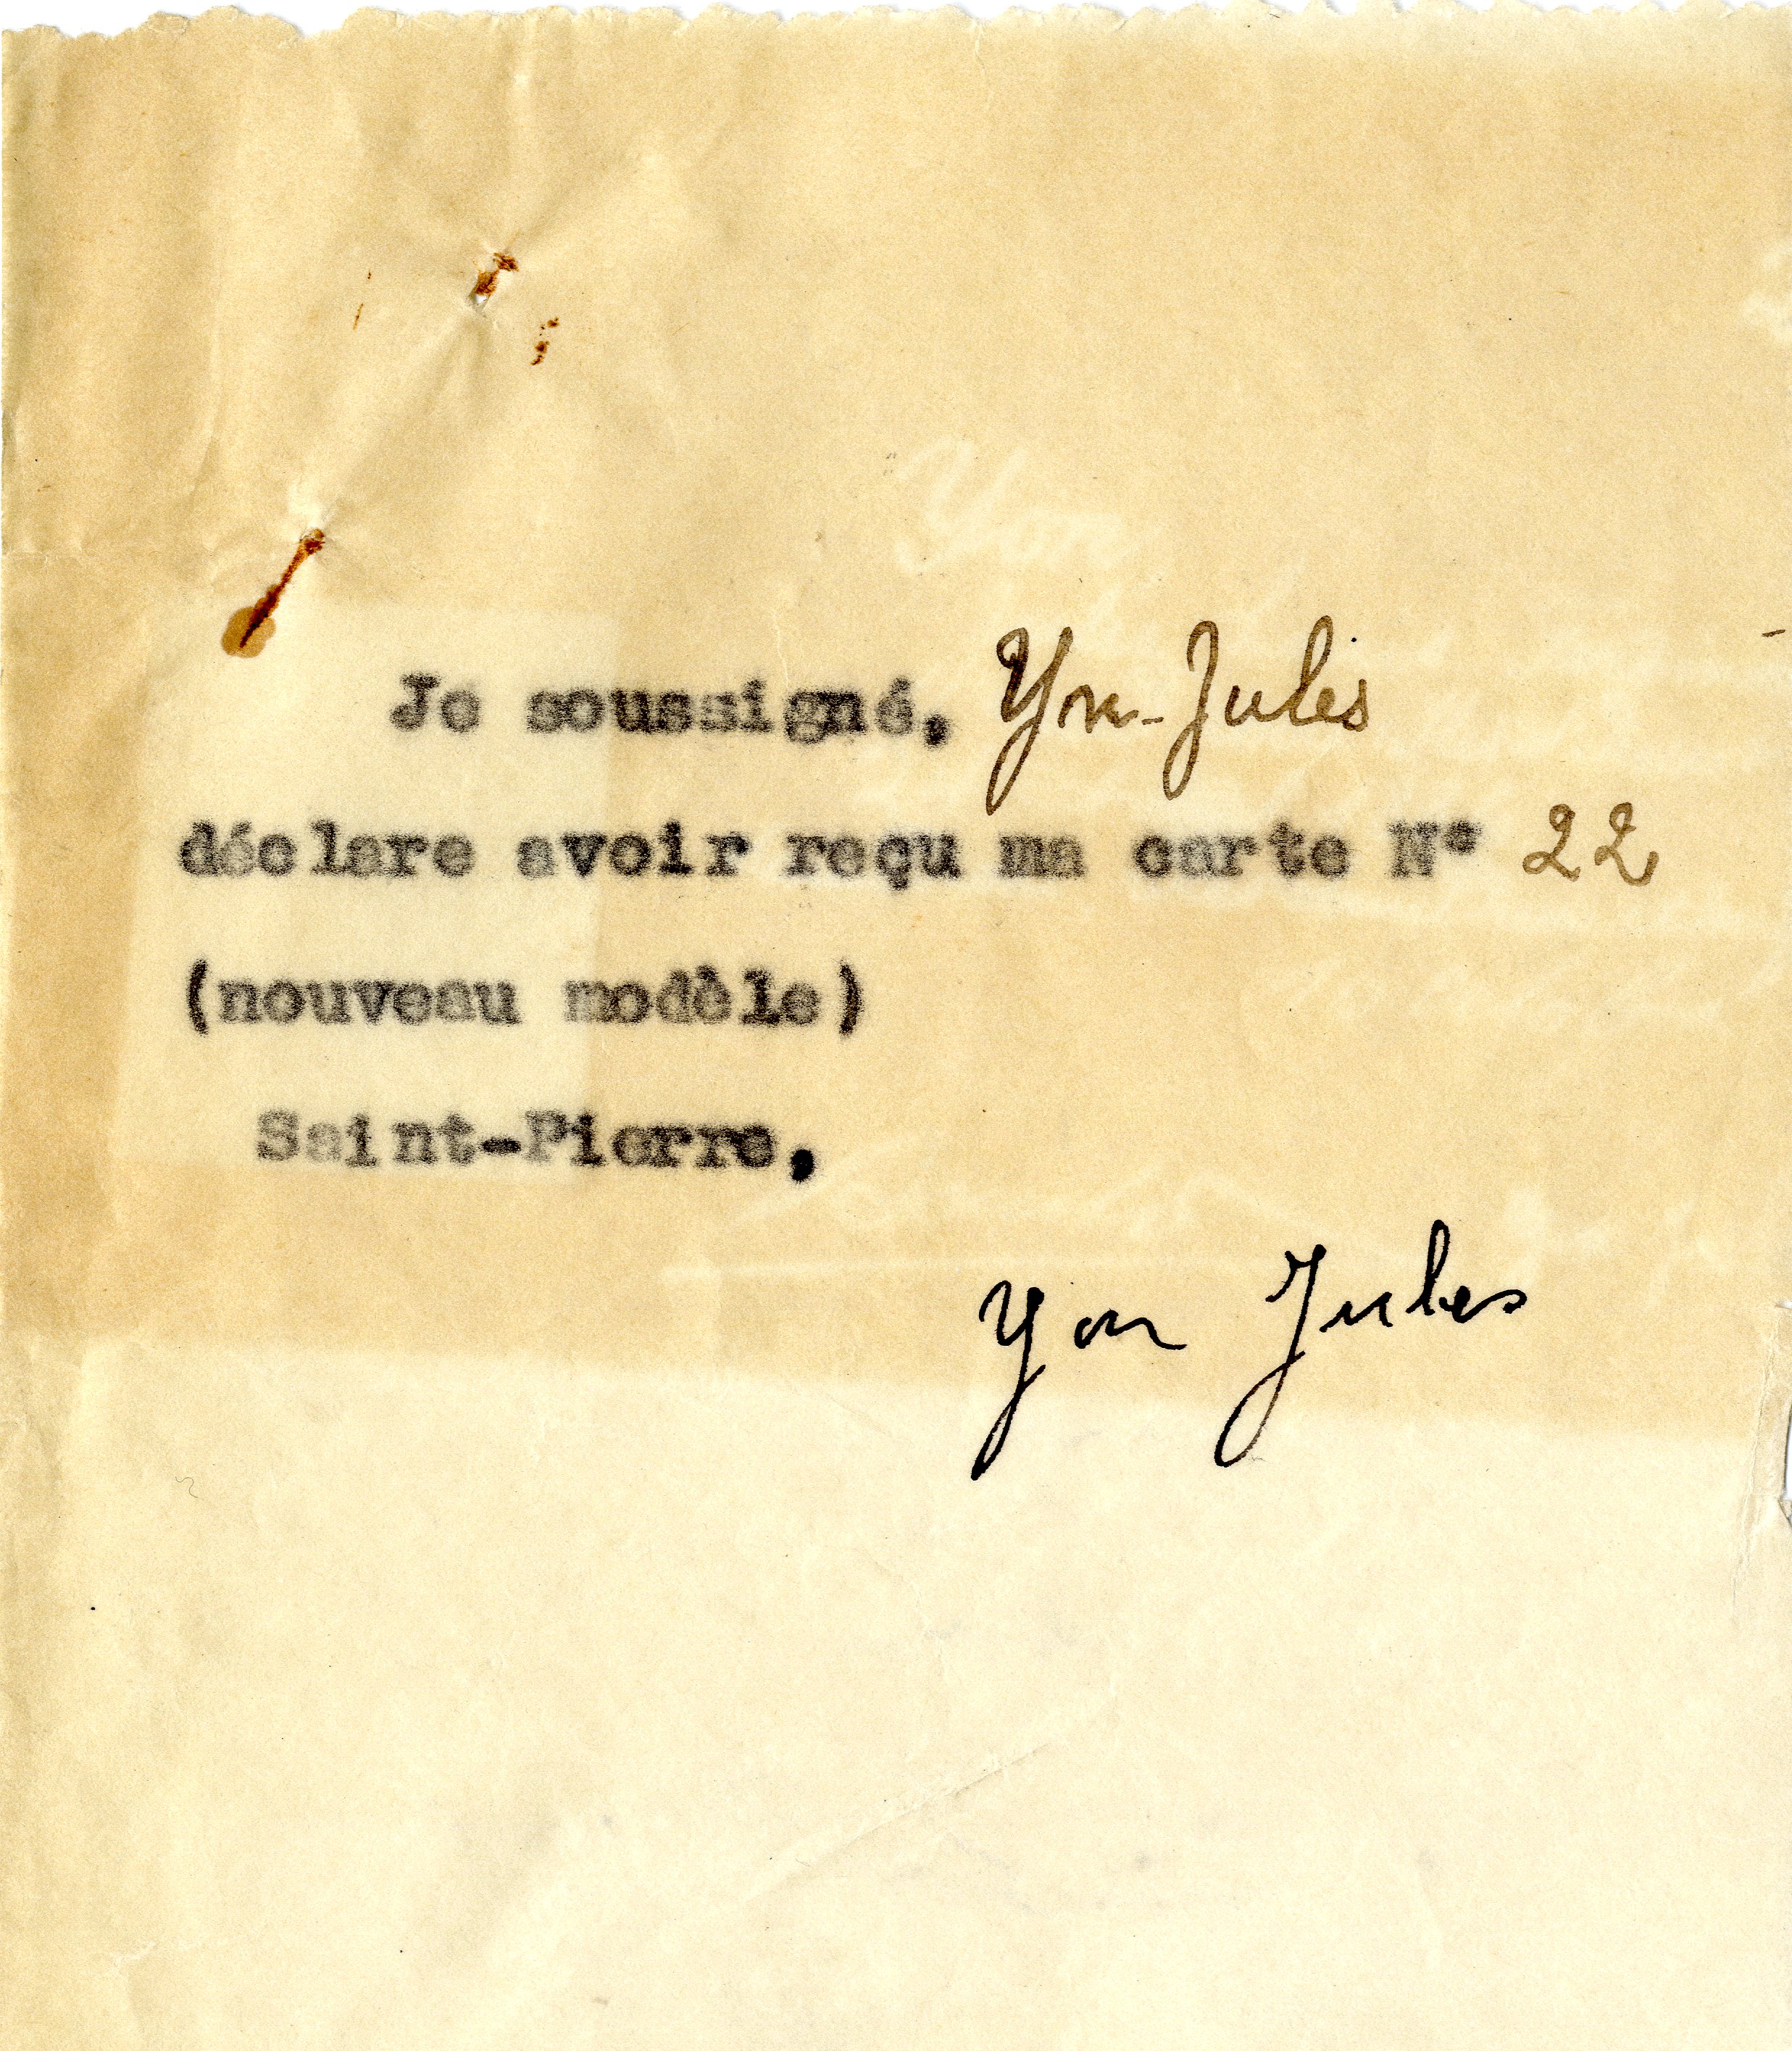 Je soussigné, Yon-Jules
déclare avoir reçu ma carte N° 22
(nouveau modèle)
Saint-Pierre,
Yon Jules